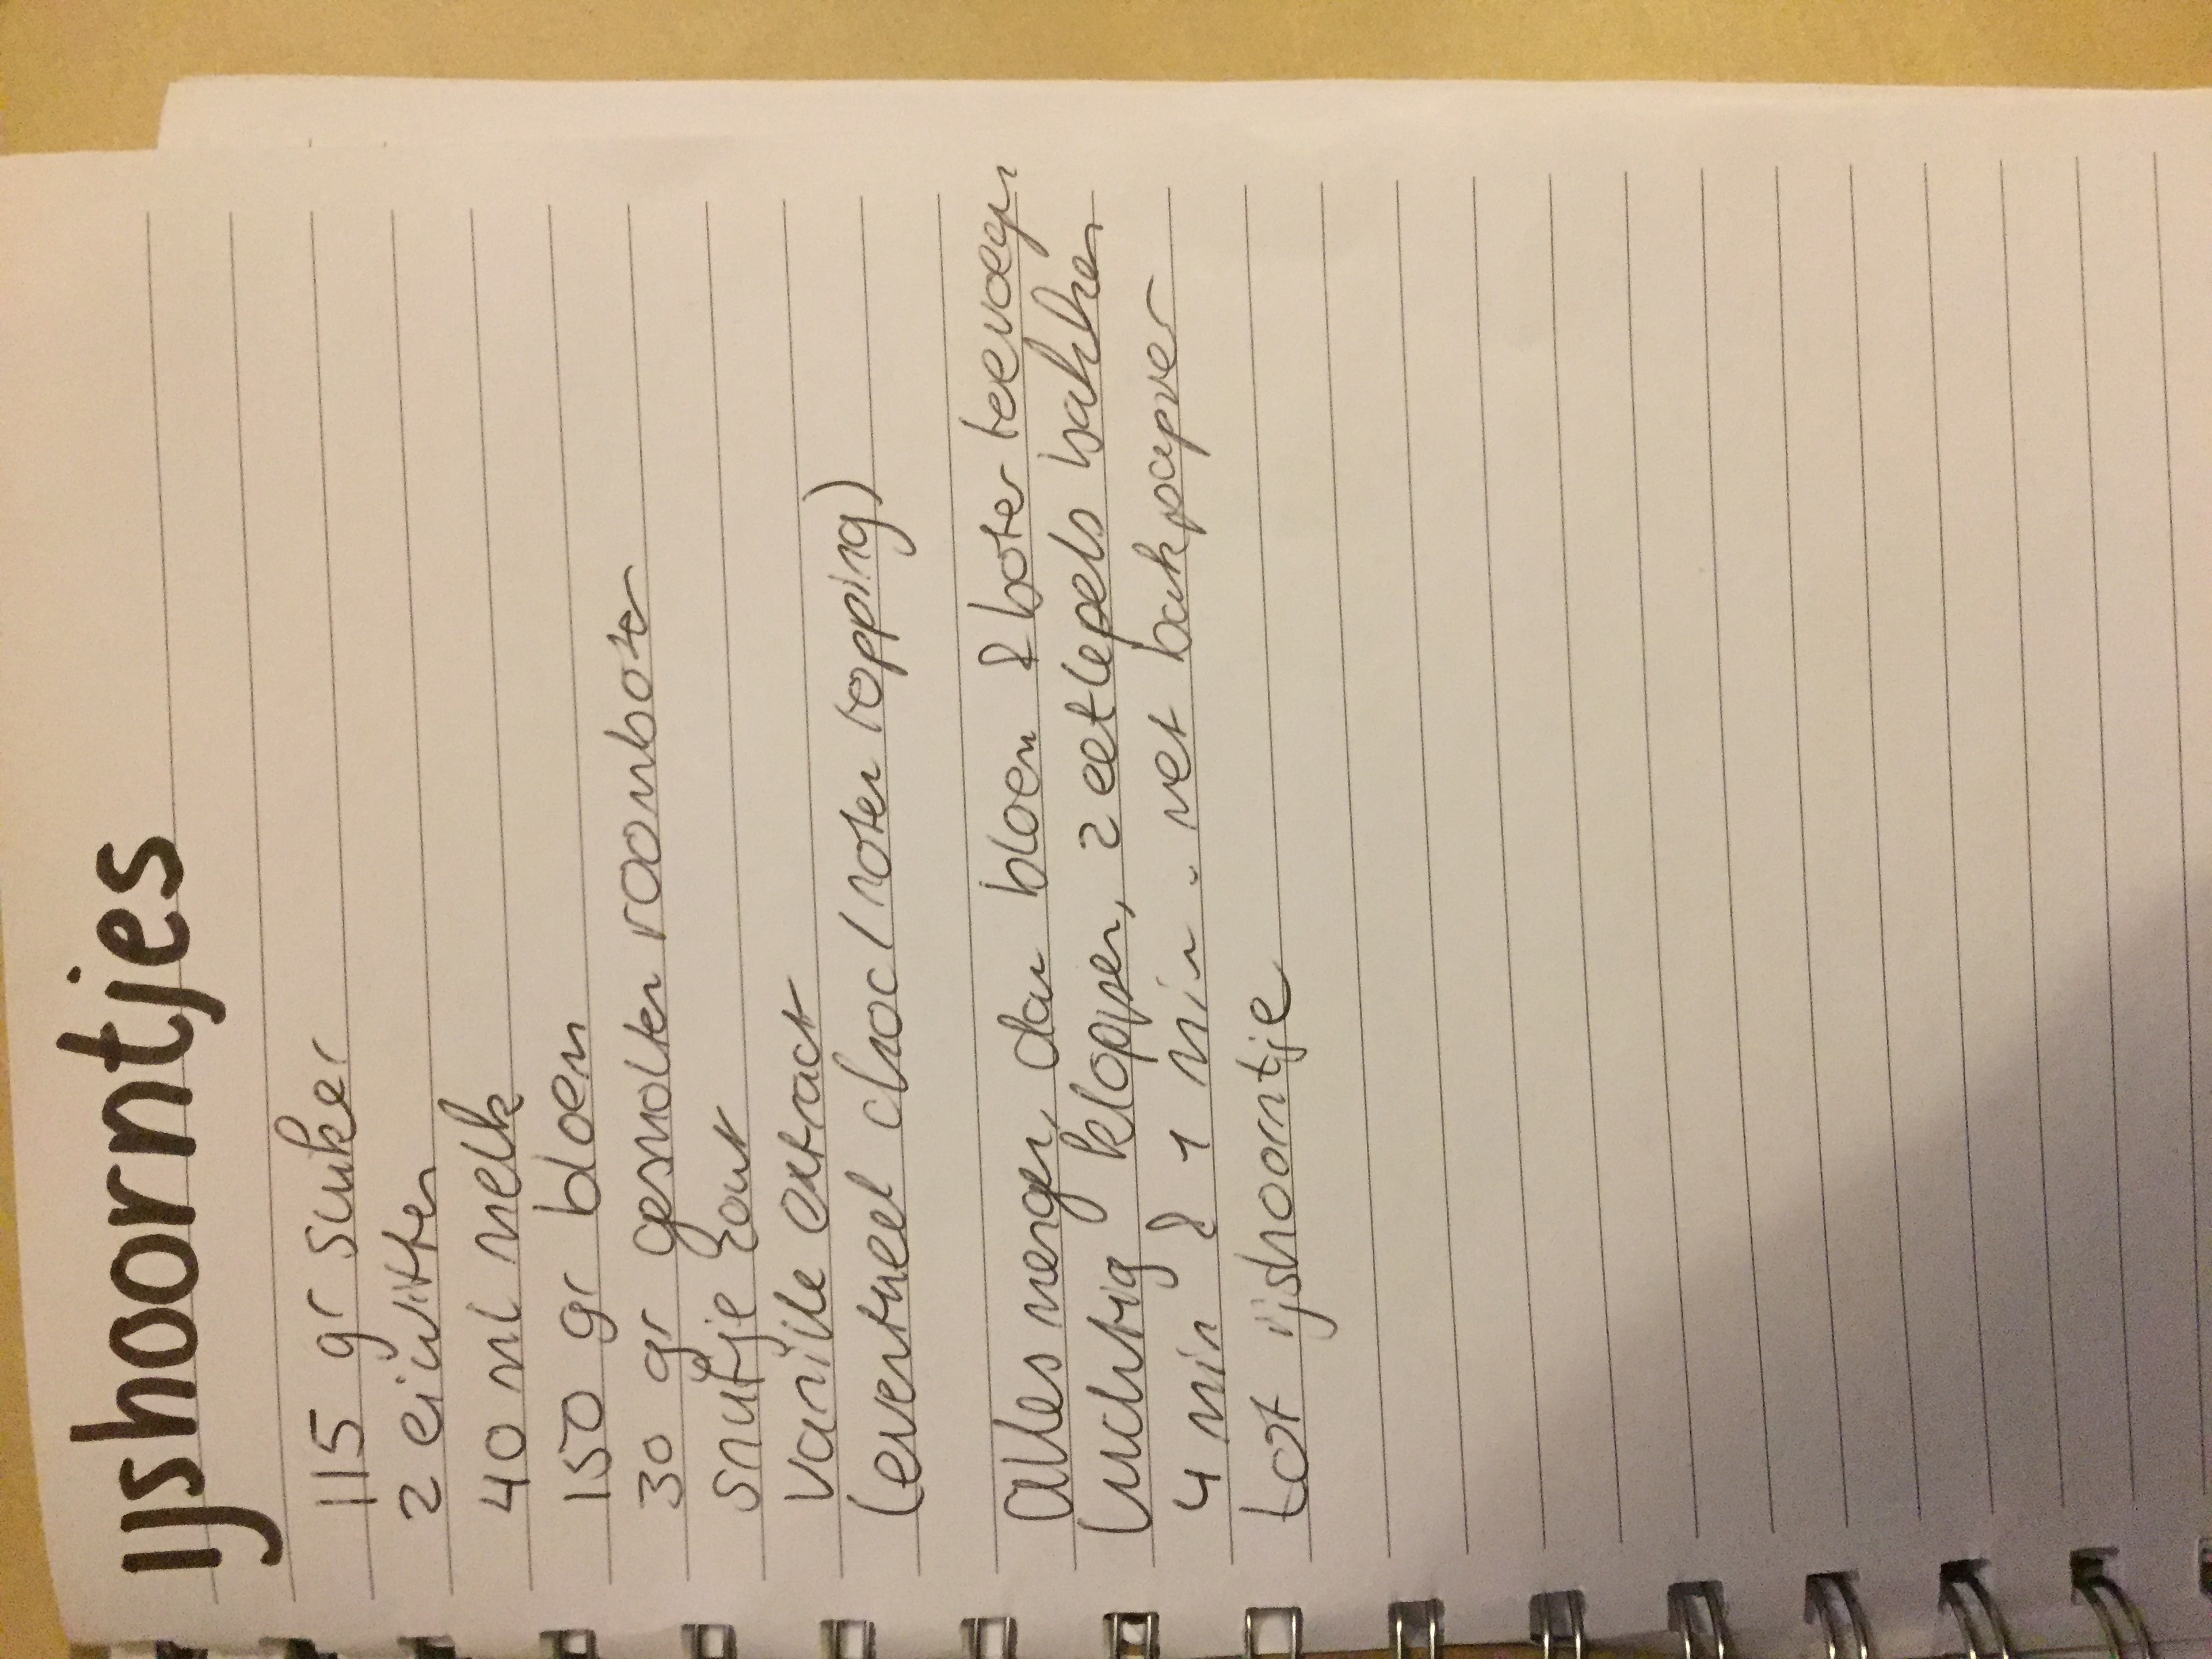 ijshoorntjes
115 gr suiker
2 eiwitten
40 ml melk
150 gr bloem
30 gr gesmolten roomboter
snufje zout
vanille extract
(eventueel choc/noten topping)
alles mengen, dan bloem & boter toevoegen
luchtig kloppen, 2 eetlepels bakken
4 min & 1 min. met bakpapier
tot ijshoorntje